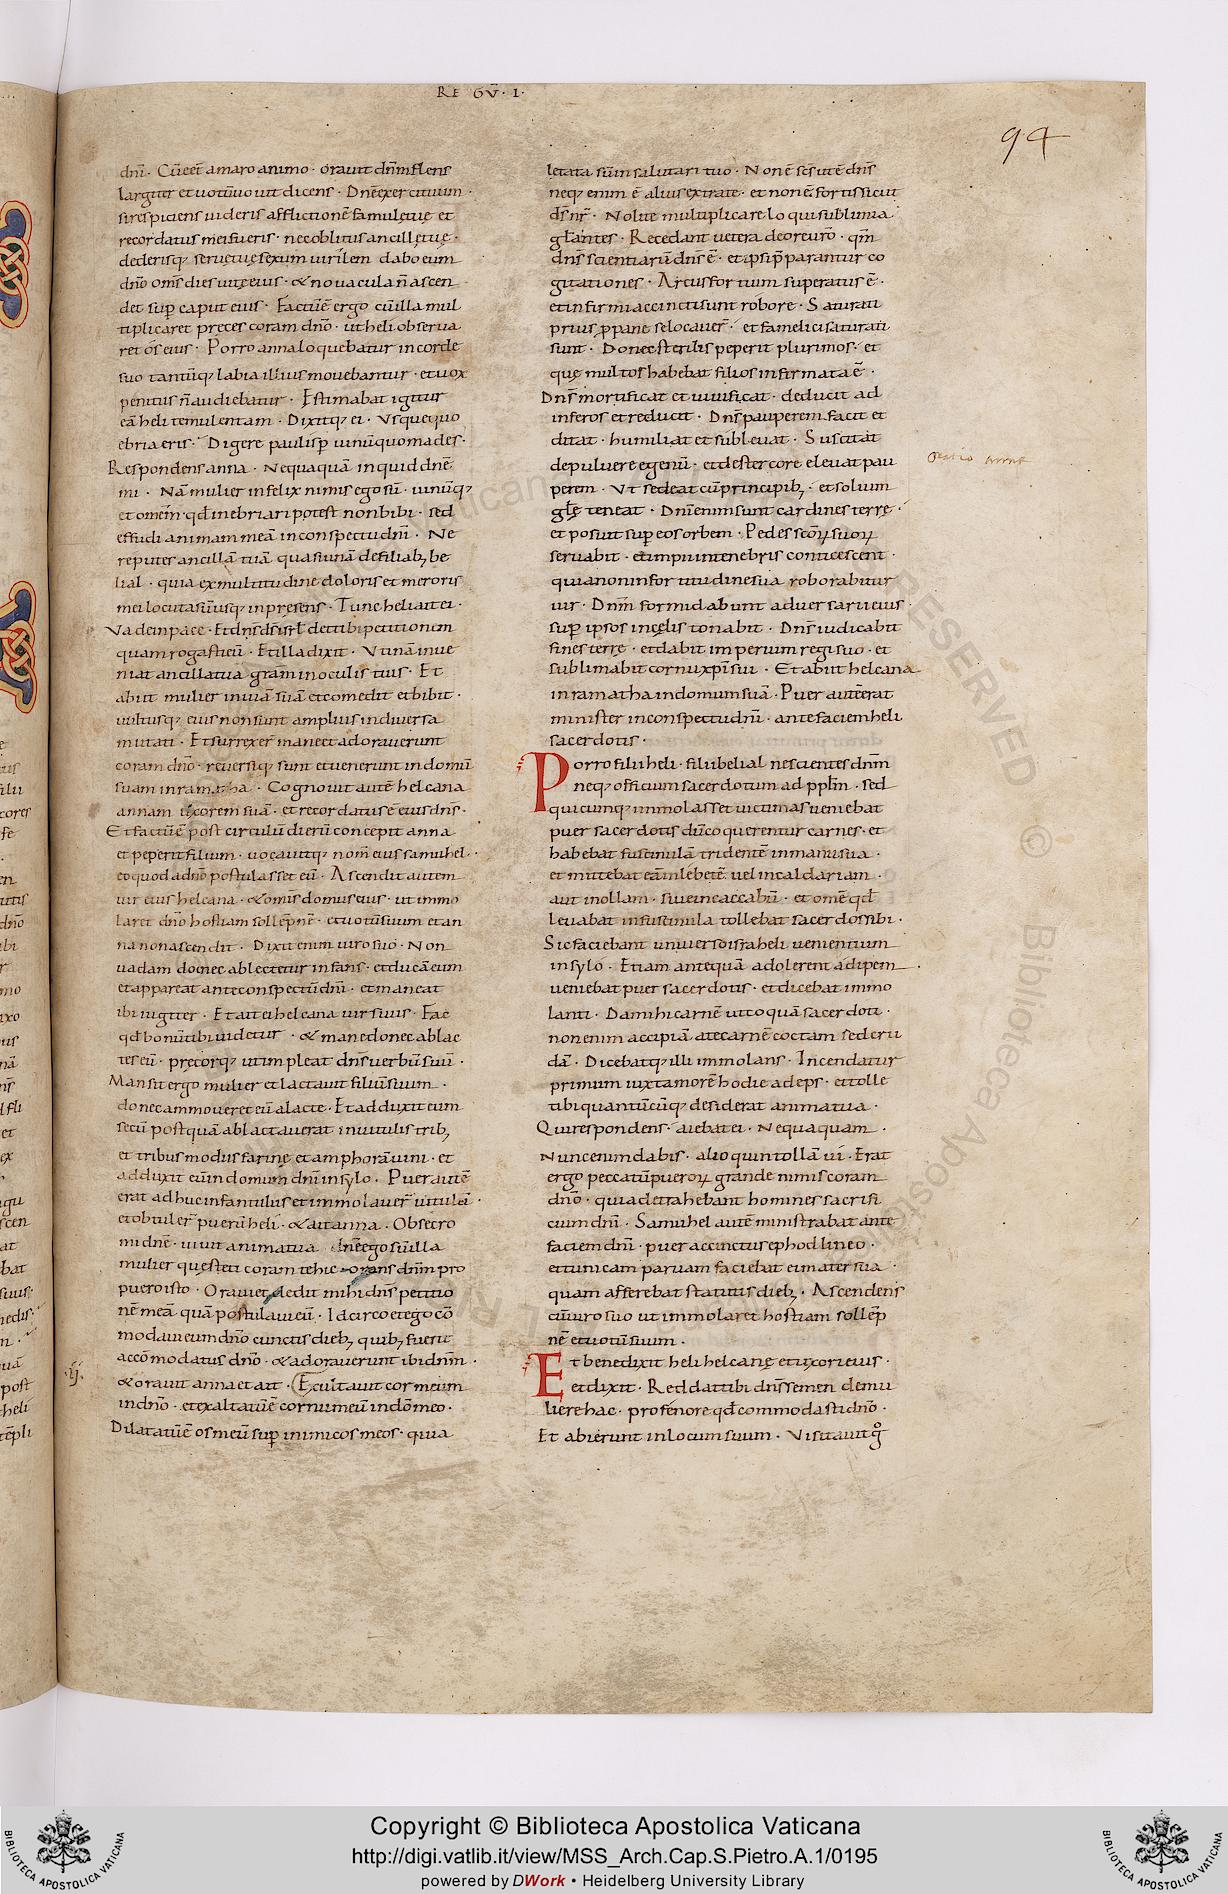 RE GU̅ · I ·
94
dn̅i · Cu̅ e͞et amaro animo · oravit dn̅m flens
largiter et votu̅ vovit dicens · Dn̅e exercituum ·
si respiciens videris afflictione̅ famulę tuę et
recordatus mei fueris · nec oblitus ancillę tuę ·
dederisq; servę tuę sexum virilem dabo eum
dn̅o om̅s dies vitę eius · & novacula n̅ ascen
det sup̲ caput eius · Factu̅ e̅ ergo cu̅ illa mul
tiplicaret preces coram dn̅o · ut heli observa
ret os eius · Porro anna loquebatur in corde
suo tantu̅q; labia illius movebantur · et vox
penitus n̅ audiebatur · Estimabat igitur
ea̅ heli temulentam · Dixitq; ei · Usquequo
ebria eris · Digere paulisp̲ vinu̅ quo mades ·
Respondens anna · Nequaqua̅ inquid dn̅e
mi · Na̅ mulier infelix nimis ego su̅ · vinu̅q;
et omne̅ qd̅ inebriari potest non bibi · sed
effudi animam mea̅ in conspectu dn̅i · Ne
reputes ancilla̅ tua̅ quasi una̅ de filiab; be
lial · quia ex multitudine doloris et meroris
mei locuta su̅ usq; in presens · Tunc heli ait ei ·
Vade in pace · Et dn̅s ds̅ isrl̅ det tibi petitionem
quam rogasti eu̅ · Et illa dixit · Utina̅ inve
niat ancilla tua gra̅m in oculis tuis · Et
abiit mulier in via̅ sua̅ et comedit et bibit ·
vultusq; eius non sunt amplius in diversa
mutati · Et surrexer̅ mane et adoraverunt
coram dn̅o · reversiq; sunt et venerunt in domu̅
suam in ramatha · Cognovit aute̅ helcana
annam uxorem sua̅ · et recordatus e̅ eius dn̅s ·
Et factu̅ e̅ post circulu̅ dieru̅ concepit anna
et peperit filium · vocavitq; nom̅ eius samuhel ·
eo quod a dn̅o postulasset eu̅ · Ascendit autem
vir eius helcana · & omis̅ domus eius · ut immo
laret dn̅o hostiam solle̅pne̅ · et votu̅ suum et an
na non ascendit · Dixit enim viro suo · Non
vadam donec ablectetur infans · et duca̅ eum
et appareat ante conspectu̅ dn̅i · et maneat
ibi iugiter · Et ait ei helcana vir suus · Fac
qd̅ bonu̅ tibi videtur · & mane donec ablac
tes eu̅ · precorq; ut impleat dn̅s verbu̅ suu̅ ·
Mansit ergo mulier et lactavit filiu̅ suum ·
donec ammoveret eu̅ a lacte · Et adduxit eum
secu̅ postqua̅ ablactaverat in vitulis trib;
et tribus modus farinę et amphora̅ vini · et
adduxit eu̅ in domum dn̅i in sylo · Puer aute̅
erat adhuc infantulus et immolaver̅ vitulu̅ ·
et obtuler̅ pueru̅ heli · & ait anna · Obsecro
mi dn̅e · vivit anima tua · dn̅e ego su̅ illa
mulier quę steti coram te hic · orans dn̅m pro
puero isto · Oravi et dedit mihi dn̅s petitio
ne̅ mea̅ qua̅ postulavi eu̅ · Idcirco et ego co̅
modavi eum dn̅o cunctis dieb; quib; fuerit
acco̅modatus dn̅o · & adoraverunt ibi dn̅m ·
·ij· & oravit anna et ait · Exultavit cor meum
in dn̅o · et exaltatu̅ e̅ cornu meu̅ in do̅ meo ·
Dilatatu̅ e̅ os meu̅ sup̲ inimicos meos · quia
letata su̅ in salutari tuo · Non e̅ sc̅s ut e̅ dn̅s
neq; enim e̅ alius extra te · et non e̅ fortis sicut
ds̅ nr̅ · Nolite multiplicare loqui sublimia
gl̅antes · Recedant vetera de ore vr̅o · qm̅
dn̅s scientiaru̅ dn̅s e̅ · et ipsi p̲parantur co
gitationes · Arcus fortium superatus e̅ ·
et infirmi accincti sunt robore · Saturati
prius p̲ pane se locaver̅ · et famelici saturati
sunt · Donec sterilis peperit plurimos · et
quę multos habebat filios infirmata e̅ ·
Dn̅s mortificat et vivificat · deducit ad
inferos et reducit · Dn̅s pauperem facit et
ditat · humiliat et sublevat · Suscitat
de pulvere egenu̅ · et de stercore elevat pau
oratio Anne
perem · Ut sedeat cu̅ principib; · et solium
gl̅ę teneat · Dn̅i enim sunt cardines terrę ·
et posuit sup̲ eos orbem · Pedes sc̅oꝝ suoꝝ
servabit · et impii in tenebris conticescent ·
quia non in fortitudine sua roborabitur
vir · Dn̅m formidabunt adversarii eius
sup̲ ipsos in cęlis tonabit · Dn̅s iudicabit
fines terrę · et dabit imperum regi suo · et
sublimabit cornu xp̅i sui · Et abiit helcana
in ramatha in domum sua̅ · Puer aute̅ erat
minister in conspectu dn̅i · ante faciem heli
sacerdotis ·
Porro filii heli · filii belial nescientes dn̅m
neq; officium sacerdotum ad pplm̅ · sed
quicunq; immolasset victimas veniebat
puer sacerdotis du̅ coquerentur carnes · et
habebat fuscinula̅ tridente̅ in manu sua ·
et mittebat ea̅ in lebete̅ vel in caldariam
aut in ollam · sive in caccabu̅ · et om̅e qd̅
levabat in fuscinula tollebat sacerdos sibi ·
Sic faciebant universo israheli venientium
in sylo · Etiam antequa̅ adolerent adipem ·
veniebat puer sacerdotis · et dicebat immo
lanti · Da mihi carne̅ ut coqua̅ sacerdoti ·
non enim accipia̅ a te carne̅ coctam sed cru
da̅ · Dicebatq; illi immolans · Incendatur
primum iuxta more̅ hodie adeps · et tolle
tibi quantu̅cu̅q; desiderat anima tua ·
Qui respondens · aiebat ei · Nequaquam ·
Nunc enim dabis · alioquin tolla̅ vi · Erat
ergo peccatu̅ pueroꝝ grande nimis coram
dn̅o · quia detrahebant homines sacrifi
cium dn̅i · Samuhel aute̅ ministrabat ante
faciem dn̅i · puer accinctus ephod lineo ·
et tunicam parvam faciebat ei mater sua ·
quam afferebat statutis dieb; · Ascendens
cu̅ viro suo ut immolaret hostiam solle̅p
ne̅ et votu̅ suum ·
Et benedixit heli helcanę et uxori eius ·
et dixit · Reddat tibi dn̅s semen de mu
liere hac · pro fenore qd̅ commodasti dn̅o ·
Et abierunt in locum suum · Visitavit g̊
Copyright © Biblioteca Apostolica Vaticana
http://digi.vatlib.it/view/MSS_Arch.Cap.S.Pietro.A.1/0195
powered by DWork • Heidelberg University Library
BIBLIOTECA APOSTOLICA VATICANA
BIBLIOTECA APOSTOLICA VATICANA